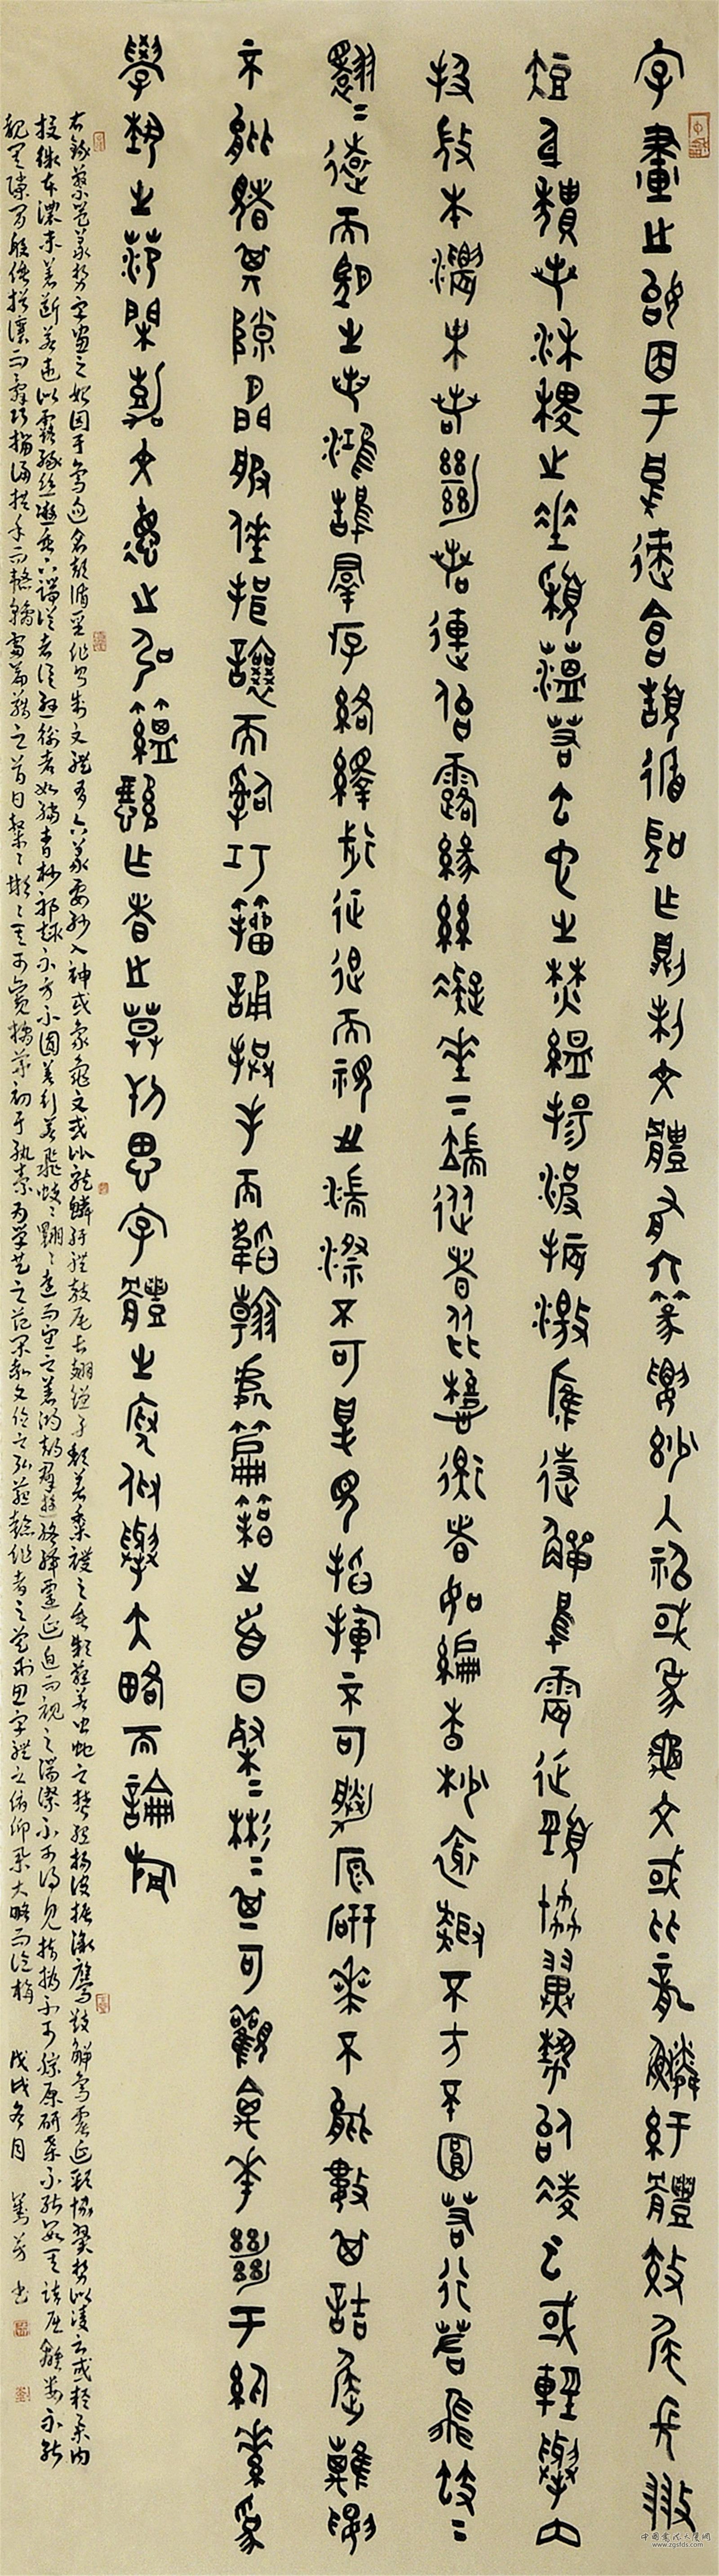 字畫之始因于鳥跡倉頡循聖作則制文體有六篆要妙入神或象龜文或比龍鱗紆體效尾長翅
短身穨若黍稷之垂穎蘊若蟲蛇之棼縕揚波振激鷹跱鳥震延頸協翼勢似凌雲或輕舉內
投微本濃末若絕若連似露緣絲凝垂下端從者如懸衡者如編杳杪邪趣不方不圓若行若飛蚑〻
翾〻遠而望之若鴻鵠群游絡繹遷延迫而視之湍漈不可得見指撝不可勝原研桑不能數其詰屈離婁
不能睹其隙間般倕揖讓而辭巧籀誦拱手而韜翰處篇籍之首目粲〻彬〻其可觀摛華艷于紈素為
學藝之範閑嘉文德之弘蘊懿作者之莫刊思字體之俯仰舉大略而論旃
右錄蔡邕篆勢字畫之始因于鳥跡倉頡循聖作則制文體有六篆要妙入神或象龜文或比龍鱗紆體效尾長翅短身頹若黍稷之垂穎蘊若蟲蛇之棼縕揚波振激鷹跱鳥震延頸協翼勢似凌雲或輕舉內
投微本濃末若斷若連似露緣絲凝垂下端從者如懸衡者如編杳杪邪趣不方不圓若行若飛蚑〻翾〻遠而望之若鴻鵠群遊絡繹遷延迫而視之湍漈不可得見指撝不可勝原研桑不能數其詰屈離婁不能
睹其隙間般倕揖讓而辭巧籀誦拱手而韜翰處篇籍之首目粲〻彬〻其可觀摛華艷于紈素為學藝之範閑嘉文德之弘蘊懿作者之莫刊思字體之俯仰舉大略而論旃 戊戌冬月 書
www.zgsfds.com